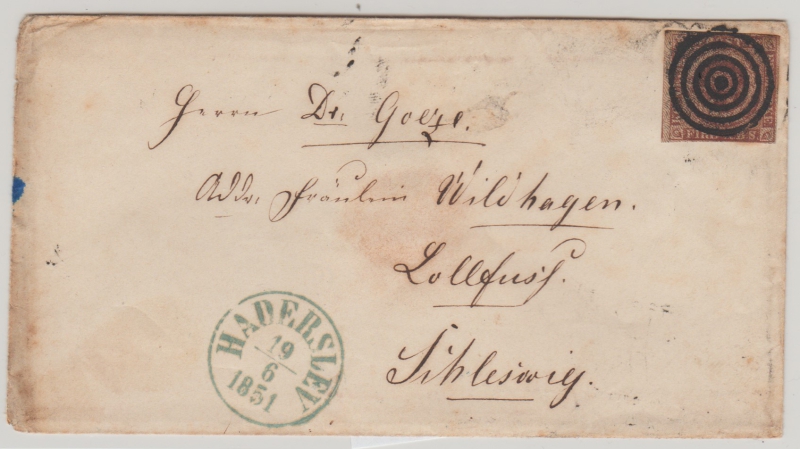 Herrn Dr. Goeze.
Addr. Fräulein Wildhagen.
Lollfuss.
Schleswig.
HADERSLEV
19
6
1851